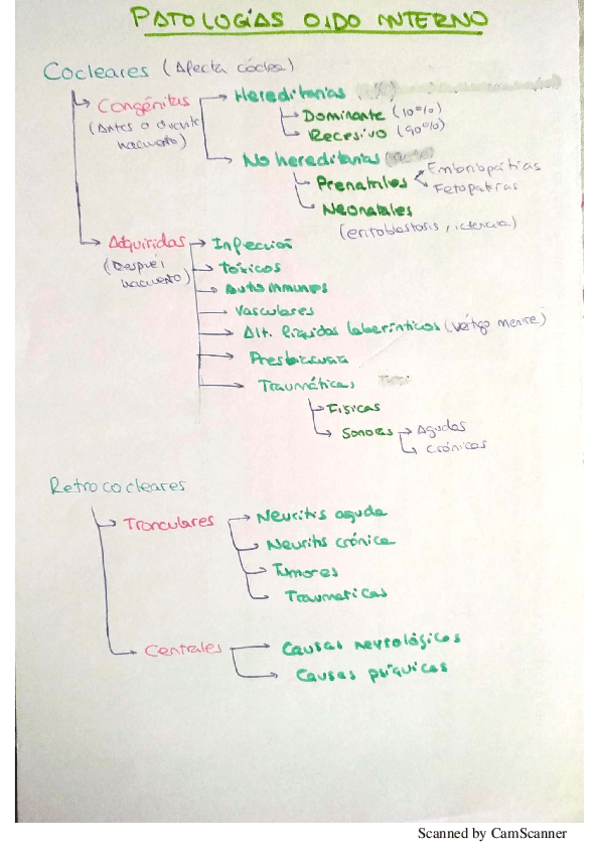 PATOLOGÍAS OIDO INTERNO
Cocleares (Afecta cóclea)
Congénitas
(Antes o durante
nacimiento)
Hereditarias
Dominante (10%)
Recesivo (90%)
No hereditarias
Prenatales
Embriopatías
Fetopatías
Neonatales
(eritoblastosis, ictericia)
Adquiridas
(Después
nacimiento)
Infección
Tóxicos
Autoinmunes
Vasculares
Alt. líquidos laberínticos (Vértigo menier)
Presbiacusia
Traumáticas
Físicas
Sonoras
Agudas
Crónicas
Retrococleares
Tronculares
Neuritis aguda
Neuritis crónica
Tumores
Traumaticas
Centrales
Causas neurológicos
Causas psíquicas
Scanned by CamScanner